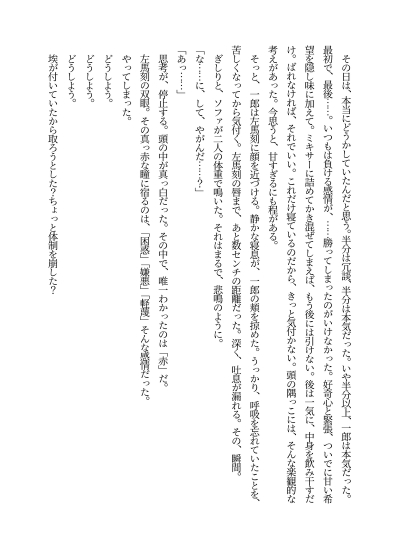 その日は、本当にどうかしていたんだと思う。半分は冗談、半分は本気だった。いや半分以上、一郎は本気だった。
最初で、最後……。いつもは負ける感情が、……勝ってしまったのがいけなかった。好奇心と緊張、ついでに甘い希
望を隠し味に加えて。ミキサーに詰めてかき混ぜてしまえば、もう後には引けない。後は一気に、中身を飲み干すだ
け。ばれなければ、それでいい。これだけ寝ているのだから、きっと気付かない。頭の隅っこには、そんな楽観的な
考えがあった。今思うと、甘すぎるにも程がある。
そっと、一郎は左馬刻に顔を近づける。静かな寝息が、一郎の頬を掠めた。うっかり、呼吸を忘れていたことを、
苦しくなってから気付く。左馬刻の唇まで、あと数センチの距離だった。深く、吐息が漏れる。その、瞬間。
ぎしりと、ソファが二人の体重で鳴いた。それはまるで、悲鳴のように。
「な……に、して、やがんだ……？」
「あっ……」
思考が、停止する。頭の中が真っ白だった。その中で、唯一わかったのは「赤」だ。
左馬刻の双眼。その真っ赤な瞳に宿るのは、「困惑」「嫌悪」「軽蔑」そんな感情だった。
やってしまった。
どうしよう。
どうしよう。
どうしよう。
埃が付いていたから取ろうとした？ちょっと体制を崩した？